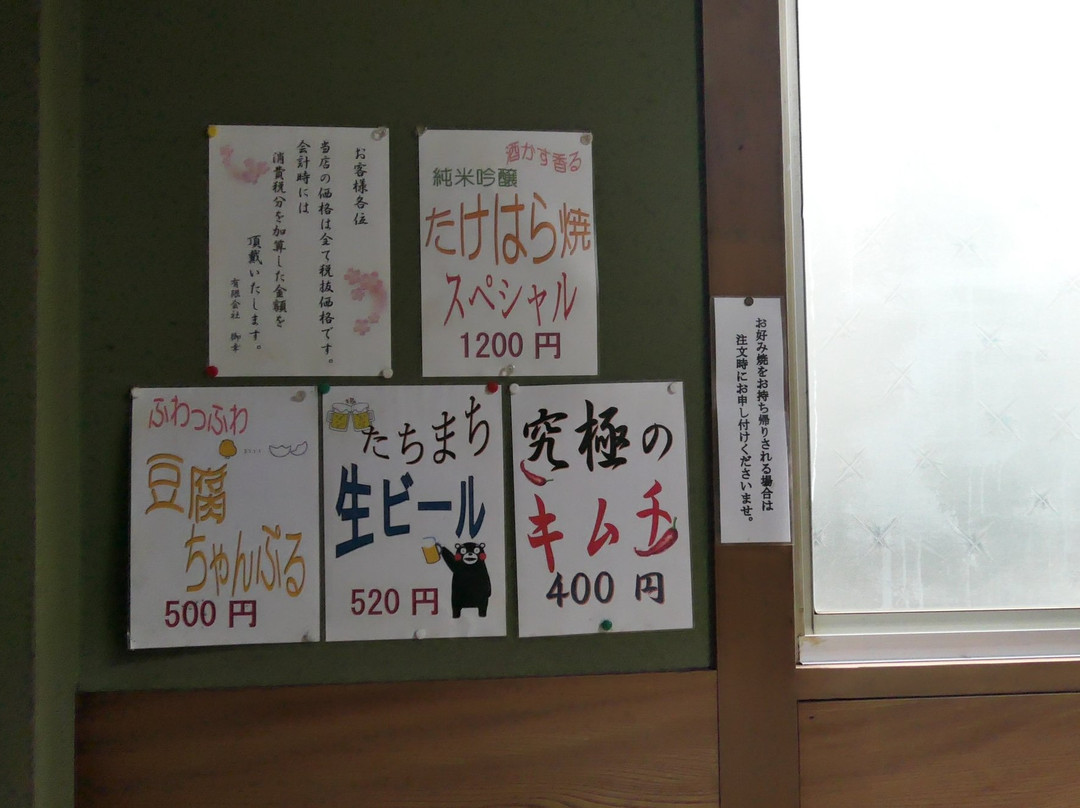 お客様各位
当店の価格は全て税抜価格です。
会計時には
消費税分を加算した金額を
頂戴いたします。
有限会社 御幸
酒かす香る
純米吟醸
たけはら焼
スペシャル
1200 円
ふわっふわ
豆腐
ちゃんぷる
500 円
たちまち
生ビール
520 円
究極の
キムチ
400 円
お好み焼をお持ち帰りされる場合は
注文時にお申し付けくださいませ。